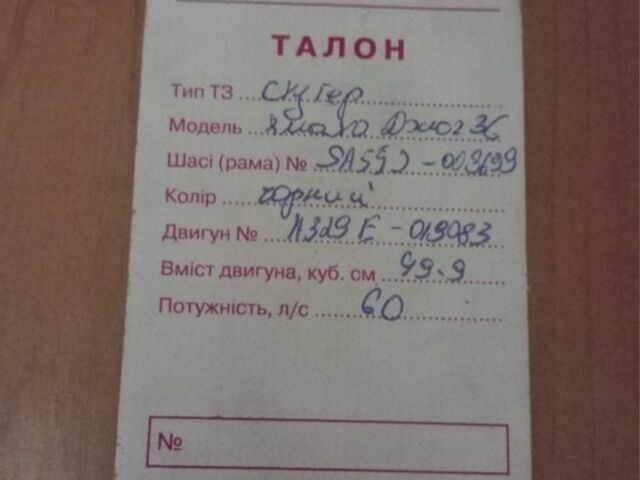 ТАЛОН
Тип ТЗ скутер
Модель Ямаха Джог 36
Шасі (рама) № SA55J-003699
Колір чорний
Двигун № A329E-019083
Вміст двигуна, куб. см 49.9
Потужність, л/с 60
№